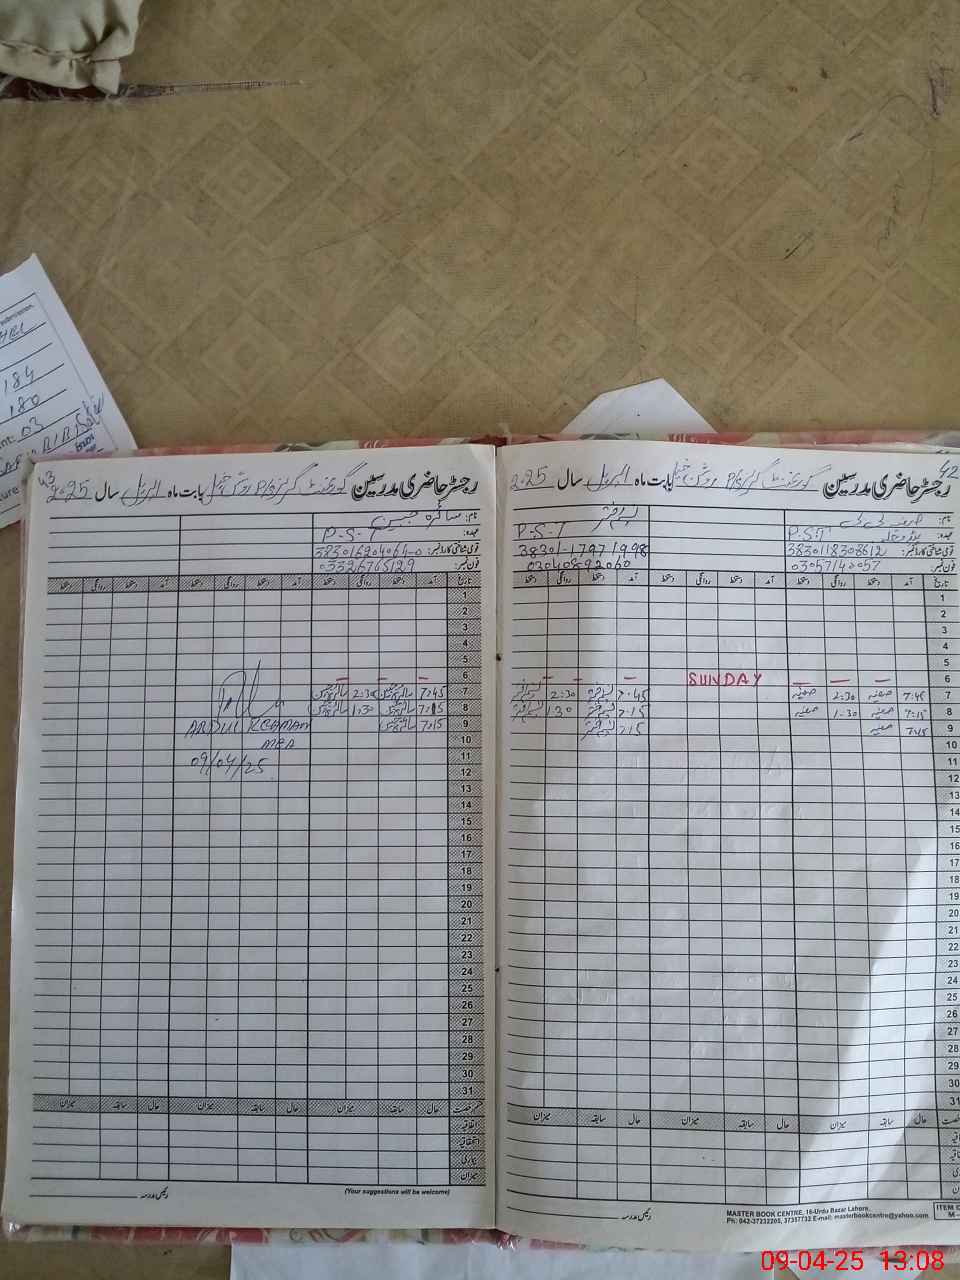 184
180
03
42
رجسٹر حاضری مدرسین گورنمنٹ گرلز P/S بابت ماہ اپریل سال 2025
نام:
عہدہ: P.S.T P.S.T
قومی شناختی کارڈ نمبر: 3830118308612 38301-1797199-8
فون نمبر: 03057140057 03040892060
تاریخ آمد دستخط روانگی دستخط آمد دستخط روانگی دستخط آمد دستخط روانگی دستخط
1
2
3
4
5
6 — — — SUNDAY — — —
7 7:45 صفیہ 2:30 صفیہ 7:45 2:30
8 7:15 صفیہ 1:30 صفیہ 7:15 1:30
9 7:45 صفیہ 7:15
10
11
12
13
14
15
16
17
18
19
20
21
22
23
24
25
26
27
28
29
30
31
حال سابقہ میزان حال سابقہ میزان حال سابقہ میزان
رئیس مدرسہ
MASTER BOOK CENTRE, 16-Urdu Bazar Lahore,
Ph: 042-37232205, 37357732 E-mail: masterbookcentre@yahoo.com
43
رجسٹر حاضری مدرسین گورنمنٹ گرلز P/S بابت ماہ اپریل سال 2025
نام:
عہدہ: P.S.T
قومی شناختی کارڈ نمبر: 383016204064-0
فون نمبر: 03326765129
تاریخ آمد دستخط روانگی دستخط آمد دستخط روانگی دستخط آمد دستخط روانگی دستخط
1
2
3
4
5
6 — — —
7 7:45 2:30
8 7:15 1:30
9 7:15
ABDUL REHMAN
MEA
09/04/25
10
11
12
13
14
15
16
17
18
19
20
21
22
23
24
25
26
27
28
29
30
31
حال سابقہ میزان حال سابقہ میزان حال سابقہ میزان
اتفاقیہ
استحقاقیہ
بیماری
میزان
(Your suggestions will be welcome)
رئیس مدرسہ
09-04-25 13:08